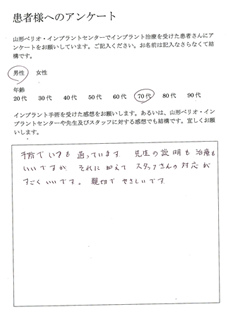 患者様へのアンケート
山形ペリオ・インプラントセンターでインプラント治療を受けた患者さんにア
ンケートをお願いしています。ご記入ください。お名前は記入なさらなくて結
構です。
男性 女性
年齢
20代 30代 40代 50代 60代 70代 80代 90代
インプラント手術を受けた感想をお願いします。あるいは、山形ペリオ・イン
プラントセンターや先生及びスタッフに対する感想でも結構です。宜しくお願
いします。
今まで いつも 通っています 先生の説明も 治療も
いいですが それに加えて スタッフさんの対応が
すごくいいです。 親切で やさしいです